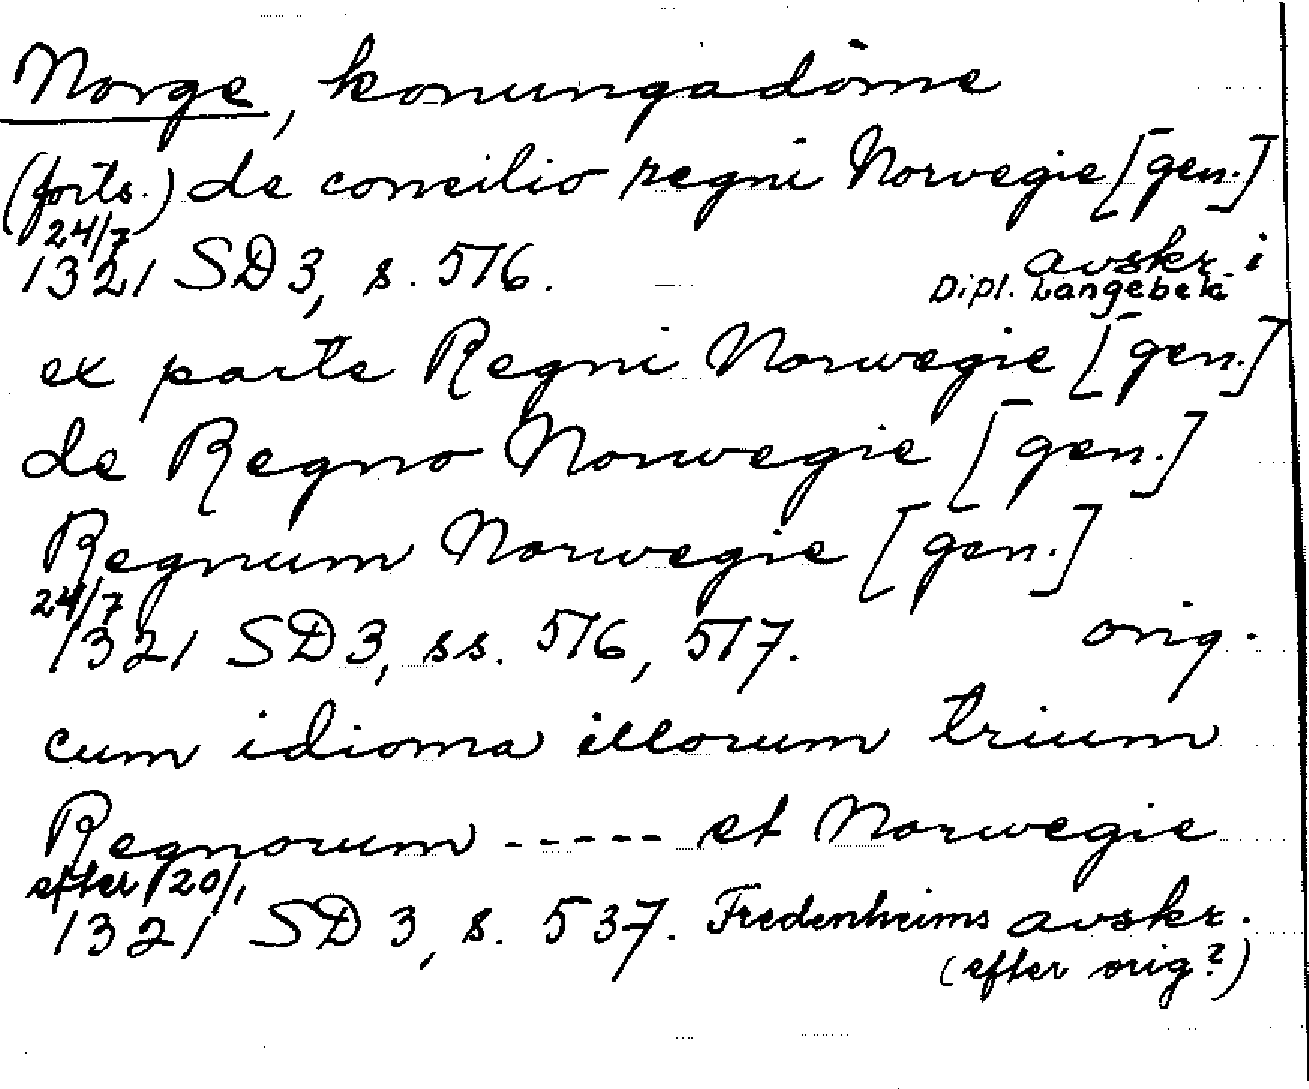 Norge, konungadöme
(forts.) de consilio regni Norvegie [gen.]
24/7
1321 SD 3, s. 516. avskr. i
Dipl. Langebek
ex parte Regni Norwegie [gen.]
de Regno Norwegie [gen.]
Regnum Norwegie [gen.]
24/7
1321 SD 3, ss. 516, 517. orig.
cum idioma illorum trium
Regnorum ----- et Norwegie
efter 20/1
1321 SD 3, s. 537. Fredenheims avskr.
(efter orig?)